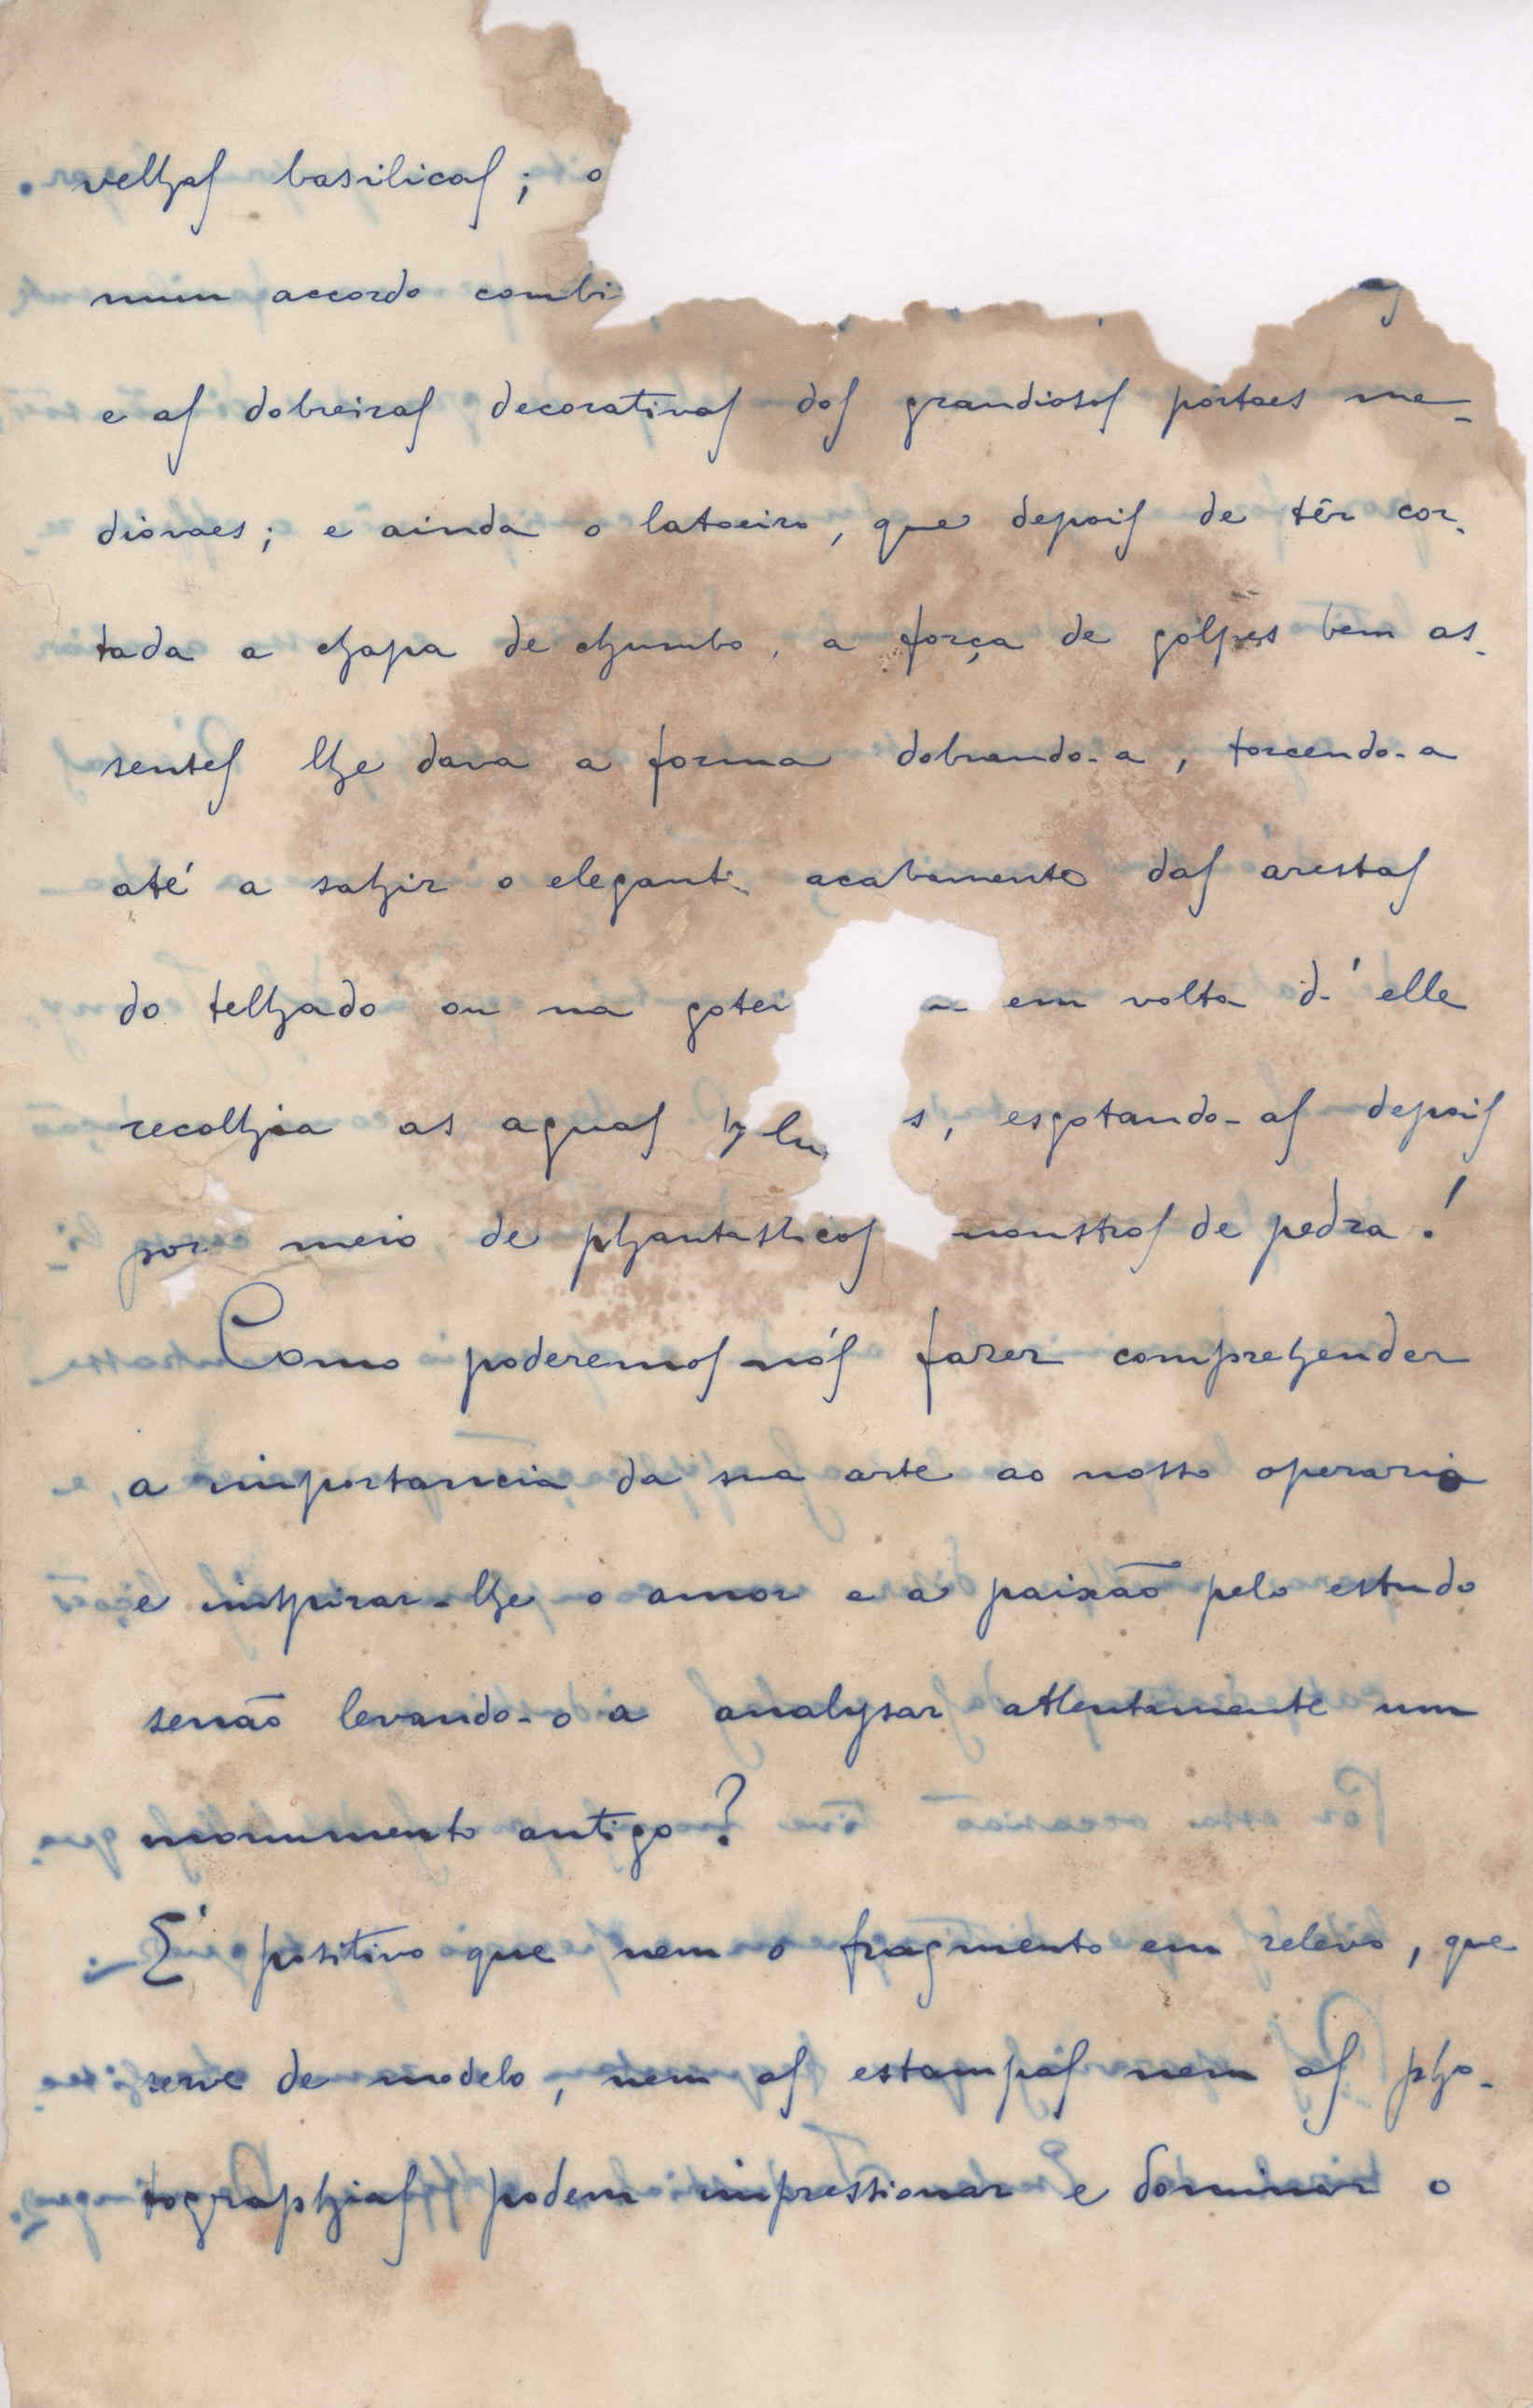 velhas basilicas; o
num accordo combi
e as dobreiras decorativas dos grandiosos portaes me-
diovaes; e ainda o latoeiro, que depois de têr cor-
tada a chapa de chumbo, a força de golpes bem as-
sentes lhe dava a forma dobrando-a, torcendo-a
até a sahir o elegante acabamento das arestas
do telhado ou na gotei em volta d'elle
recolhia as aguas s, esgotando-as depois
por meio de phantasticos monstros de pedra!
Como poderemos nós fazer comprehender
a importancia da sua arte ao nosso operario
e inspirar-lhe o amor e a paixão pelo estudo
senão levando-o a analysar attentamente um
monumento antigo?
É positivo que nem o fragmento em relevo, que
serve de modelo, nem as estampas nem as pho-
tographias podem impressionar e dominar o